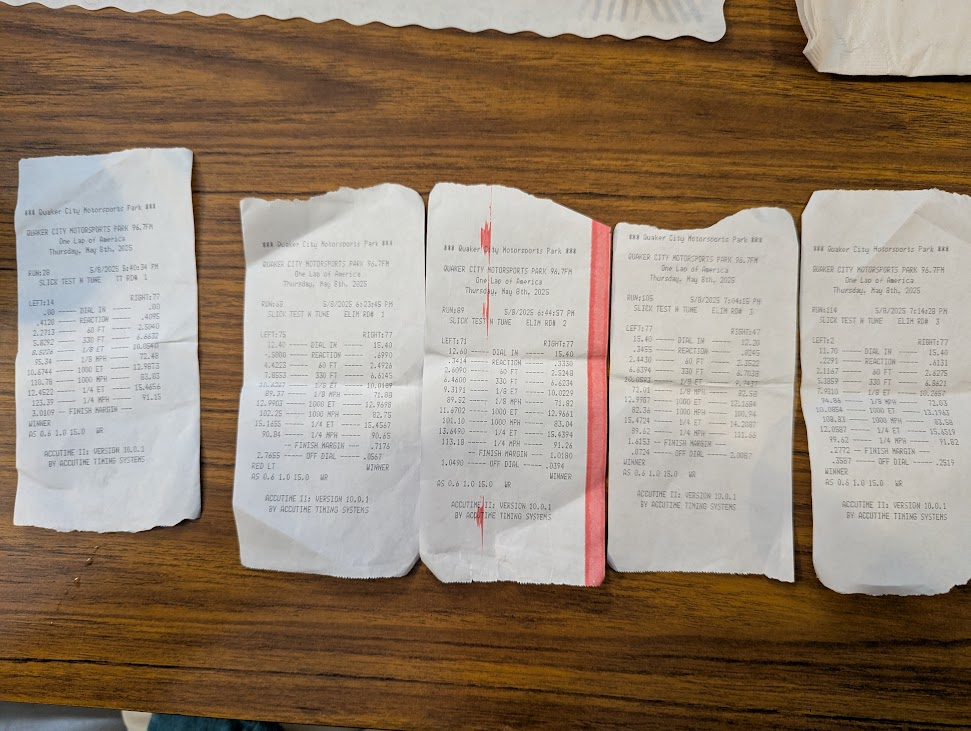 *** Quaker City Motorsports Park ***
QUAKER CITY MOTORSPORTS PARK 96.7FM
One Lap of America
Thursday, May 8th, 2025
RUN:28 5/8/2025 5:40:34 PM
SLICK TEST N TUNE 77 RD# 1
LEFT:14 RIGHT:77
.00 ---- DIAL IN ---- .00
.4120 ---- REACTION ---- .4095
2.2713 ---- 60 FT ---- 2.5040
5.8292 ---- 330 FT ---- 6.6632
---- 1/8 ET ----
---- 1/8 MPH ---- 72.48
10.6744 ---- 1000 ET ---- 12.9873
110.78 ---- 1000 MPH ---- 83.03
12.4522 ---- 1/4 ET ---- 15.4656
123.39 ---- 1/4 MPH ---- 91.15
3.0109 -- FINISH MARGIN --
WINNER
AS 0.6 1.0 15.0 WR
ACCUTIME II: VERSION 10.0.1
BY ACCUTIME TIMING SYSTEMS
*** Quaker City Motorsports Park ***
QUAKER CITY MOTORSPORTS PARK 96.7FM
One Lap of America
Thursday, May 8th, 2025
5/8/2025 6:23:45 PM
SLICK TEST N TUNE ELIM RD# 1
LEFT:75 RIGHT:77
12.40 ---- DIAL IN ---- 15.40
-.5800 ---- REACTION ---- .6990
4.6223 ---- 60 FT ---- 2.4926
7.8553 ---- 330 FT ---- 6.6145
---- 1/8 ET ---- 10.0189
89.37 ---- 1/8 MPH ---- 71.88
12.9903 ---- 1000 ET ---- 12.9698
102.25 ---- 1000 MPH ---- 82.75
---- 1/4 ET ---- 15.4567
90.84 ---- 1/4 MPH ---- 90.65
-- FINISH MARGIN -- .7176
2.7655 ---- OFF DIAL ---- .0567
RED LT WINNER
AS 0.6 1.0 15.0 WR
ACCUTIME II: VERSION 10.0.1
BY ACCUTIME TIMING SYSTEMS
*** Quaker City Motorsports Park ***
QUAKER CITY MOTORSPORTS PARK 96.7FM
One Lap of America
Thursday, May 8th, 2025
RUN:89 5/8/2025 6:44:57 PM
SLICK TEST N TUNE ELIM RD# 2
LEFT:71 RIGHT:77
12.60 ---- DIAL IN ---- 15.40
.3414 ---- REACTION ---- .3330
2.6090 ---- 60 FT ---- 2.5248
6.4600 ---- 330 FT ---- 6.6234
9.3191 ---- 1/8 ET ---- 10.0229
89.52 ---- 1/8 MPH ---- 71.82
11.6702 ---- 1000 ET ---- 12.9661
101.10 ---- 1000 MPH ---- 83.04
13.6490 ---- 1/4 ET ---- 15.4394
113.18 ---- 1/4 MPH ---- 91.26
-- FINISH MARGIN -- 1.0180
1.0490 ---- OFF DIAL ---- .0394
WINNER
AS 0.6 1.0 15.0 WR
ACCUTIME II: VERSION 10.0.1
BY ACCUTIME TIMING SYSTEMS
*** Quaker City Motorsports Park ***
QUAKER CITY MOTORSPORTS PARK 96.7FM
One Lap of America
Thursday, May 8th, 2025
RUN:105 5/8/2025 7:04:15 PM
SLICK TEST N TUNE ELIM RD# 1
LEFT:77 RIGHT:47
15.40 ---- DIAL IN ---- 12.20
.3455 ---- REACTION ----
2.6430 ---- 60 FT ---- 2.3522
6.6394 ---- 330 FT ----
---- 1/8 ET ----
72.01 ---- 1/8 MPH ----
12.9987 ---- 1000 ET ---- 12.1684
82.36 ---- 1000 MPH ---- 100.94
15.4724 ---- 1/4 ET ---- 14.2087
89.62 ---- 1/4 MPH ---- 111.66
1.6153 -- FINISH MARGIN --
.0724 ---- OFF DIAL ---- 2.0087
WINNER
AS 0.6 1.0 15.0 WR
ACCUTIME II: VERSION 10.0.1
BY ACCUTIME TIMING SYSTEMS
*** Quaker City Motorsports Park ***
QUAKER CITY MOTORSPORTS PARK 96.7FM
One Lap of America
Thursday, May 8th, 2025
RUN:114 5/8/2025 7:14:28 PM
SLICK TEST N TUNE ELIM RD# 3
LEFT:2 RIGHT:77
11.70 ---- DIAL IN ---- 15.40
.2291 ---- REACTION ---- .6131
2.1167 ---- 60 FT ---- 2.6275
---- 330 FT ---- 6.8621
---- 1/8 ET ----
---- 1/8 MPH ---- 72.03
10.0854 ---- 1000 ET ----
108.83 ---- 1000 MPH ---- 83.58
12.0587 ---- 1/4 ET ---- 15.6519
99.62 ---- 1/4 MPH ---- 91.82
.2772 -- FINISH MARGIN --
.3587 ---- OFF DIAL ---- .2519
WINNER
AS 0.6 1.0 15.0 WR
ACCUTIME II: VERSION 10.0.1
BY ACCUTIME TIMING SYSTEMS